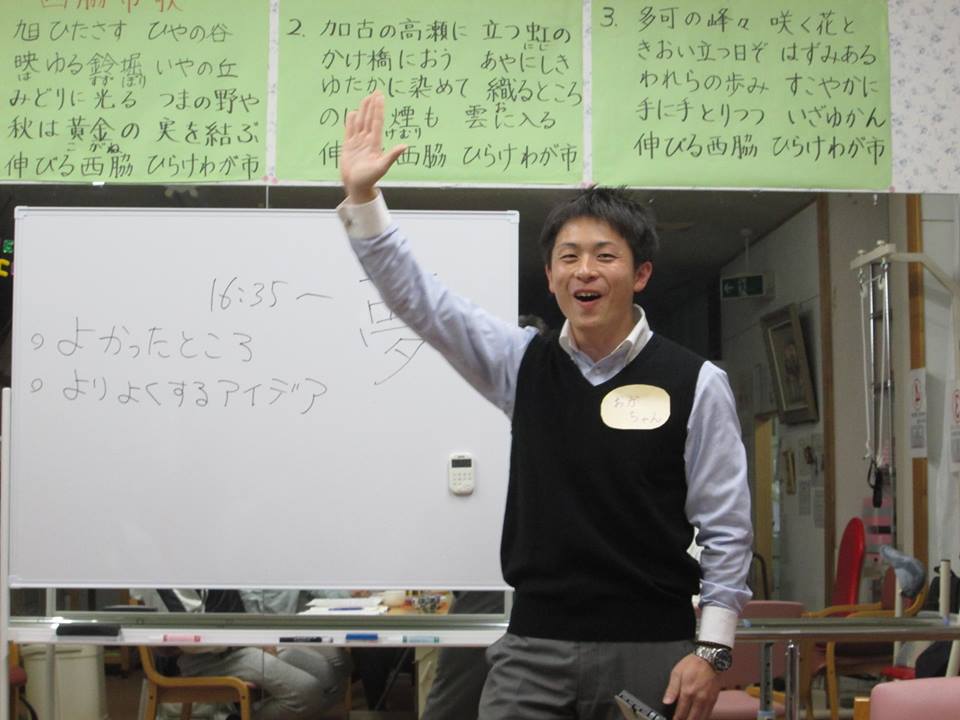 西脇市歌
旭 ひたさす ひやの谷
映ゆる鈴堀 いやの丘
は すず ぼり
みどりに光る つまの野や
秋は黄金の 実を結ぶ
こがね
伸びる西脇 ひらけわが市
2. 加古の高瀬に 立つ虹の
にじ
かけ橋におう あやにしき
ゆたかに染めて 織るところ
お
煙も 雲に入る
けむり
伸びる西脇 ひらけわが市
3. 多可の峰々 咲く花と
きおい立つ日ぞ はずみある
われらの歩み すこやかに
手に手とりつつ いざゆかん
伸びる西脇 ひらけわが市
16:35〜
夢
。よかったところ
。よりよくするアイデア
おか
ちゃん